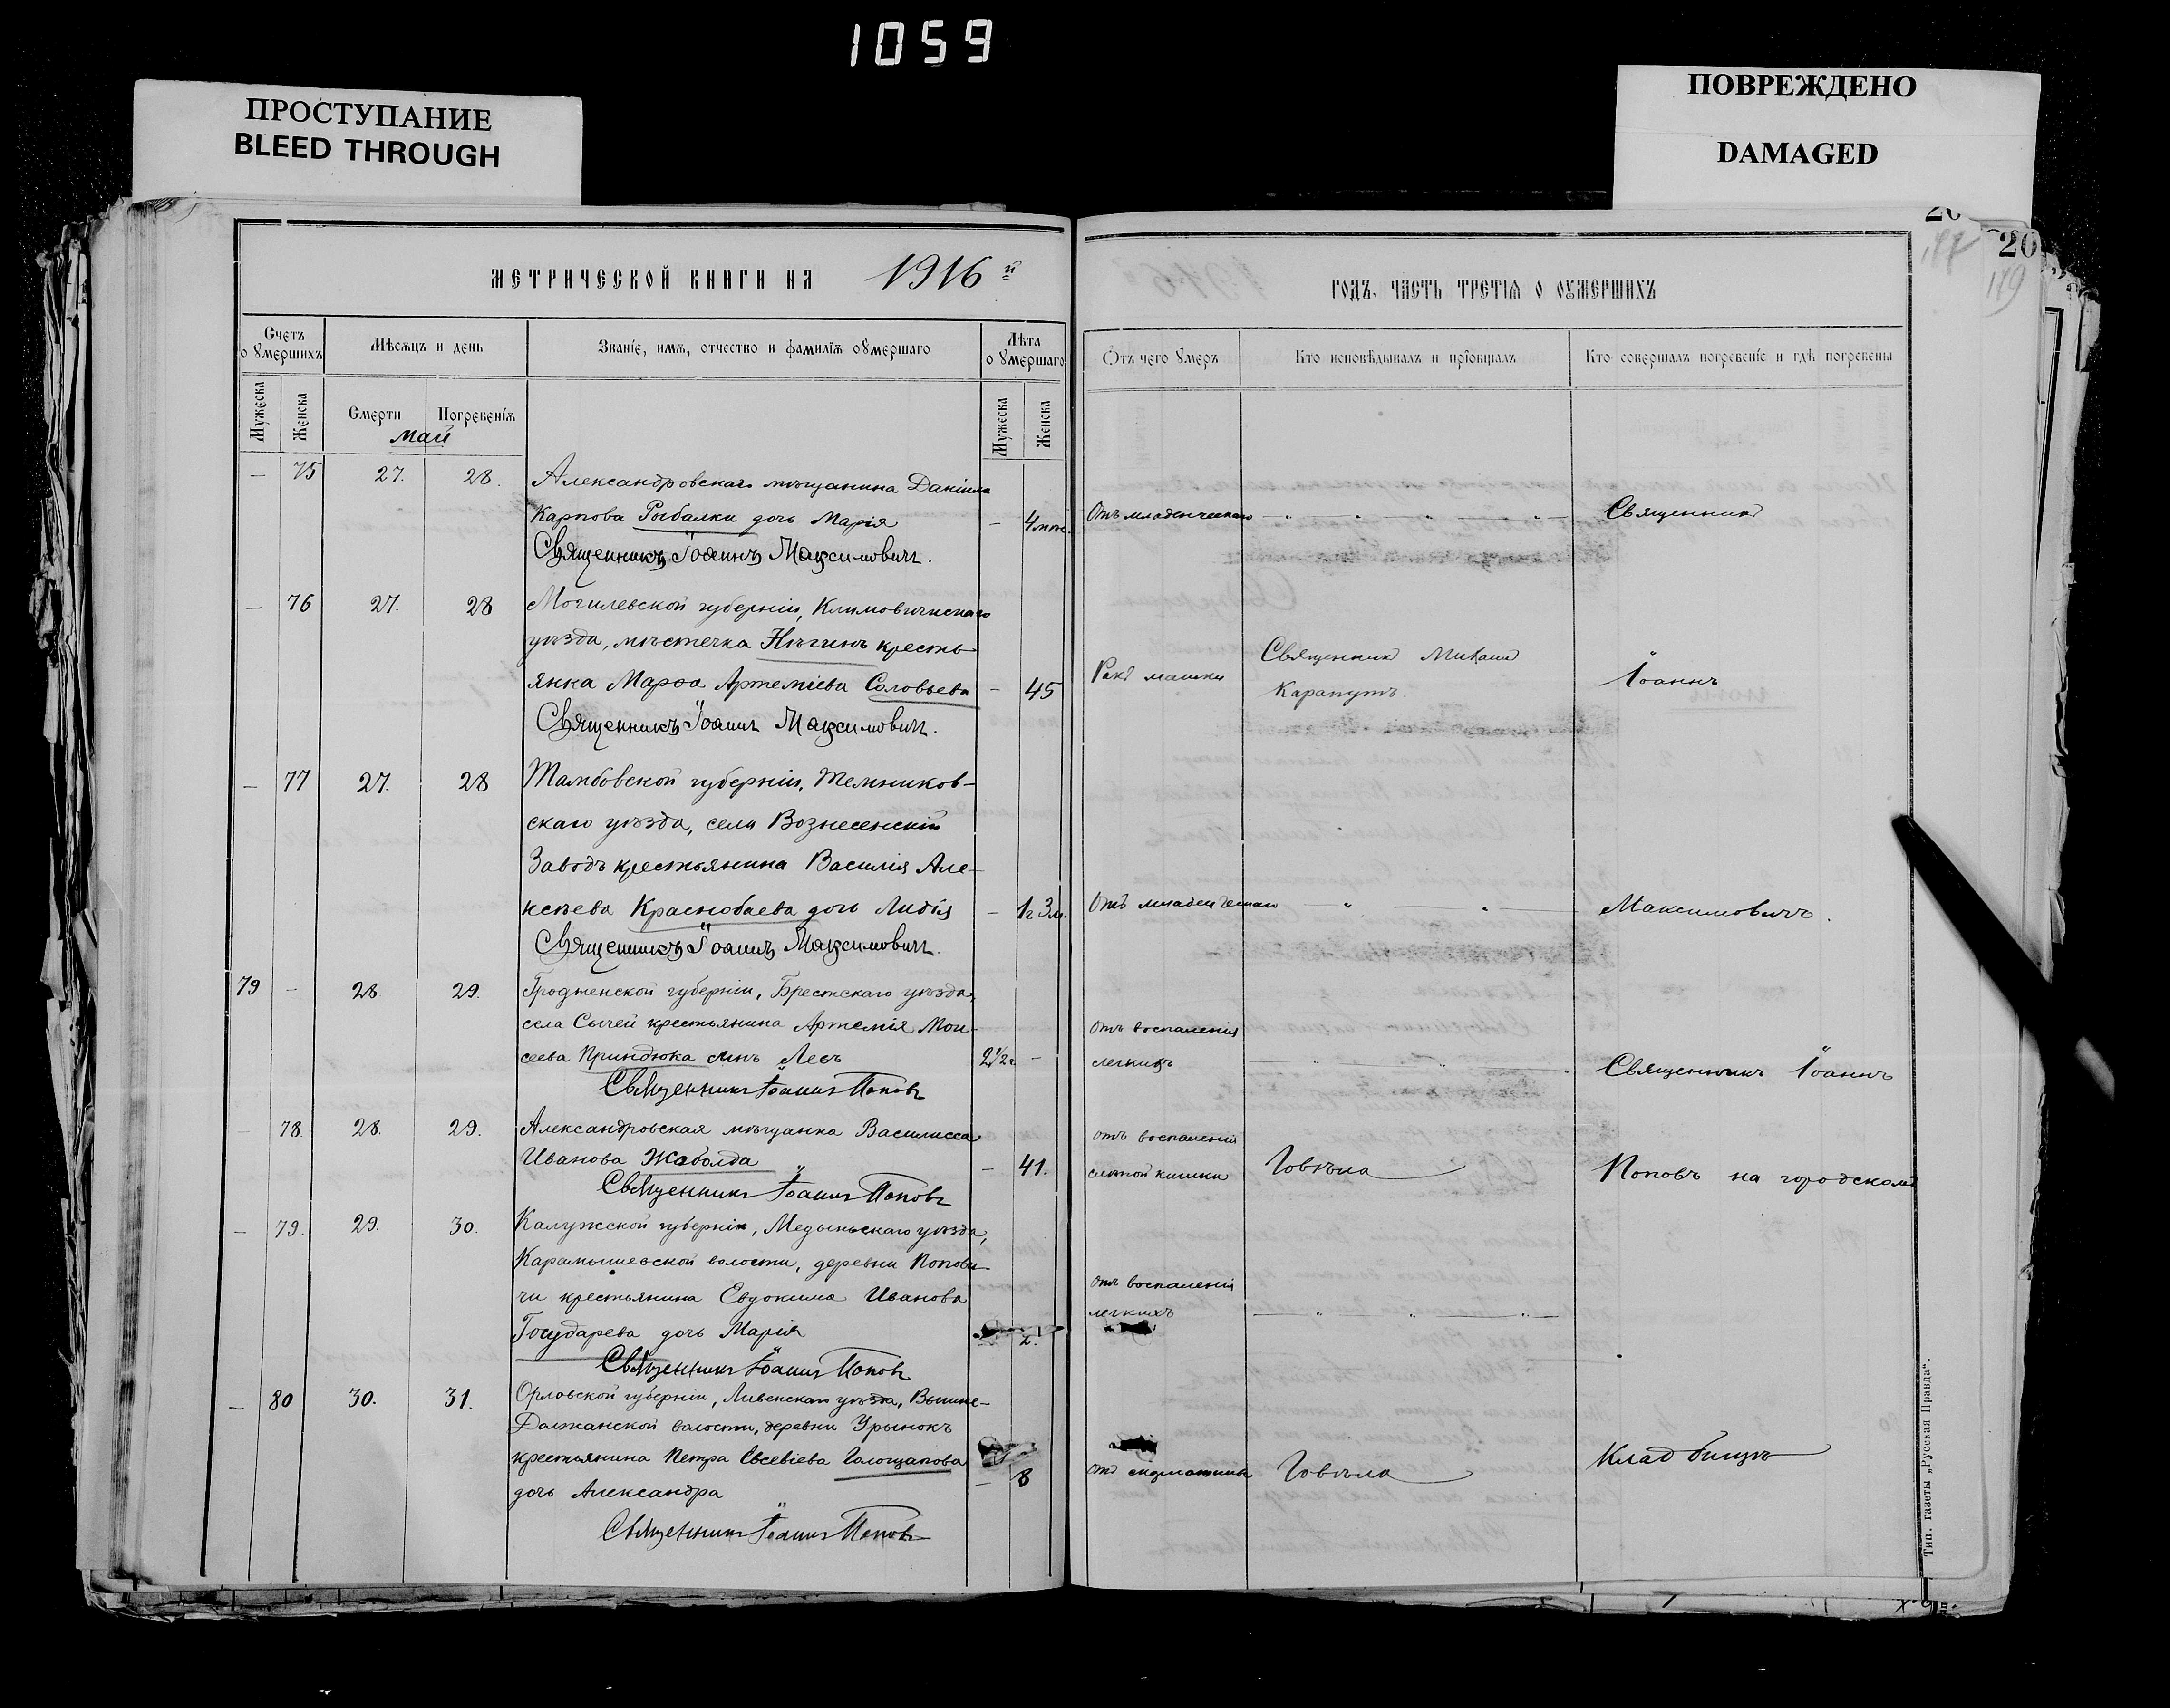 1059
ПРОСТУПАНИЕ
BLEED THROUGH
ПОВРЕЖДЕНО
DAMAGED
20
20
119
МЕТРИЧЕСКОЙ КНИГИ НА 1916 й
ГОДЪ, ЧАСТЬ ТРЕТІЯ О ОУМЕРШИХЪ
Счетъ оумершихъ
Мѣсяцъ и день
Званіе, имя, отчество и фамилія оумершаго
Лѣта оумершаго
Отъ чего умеръ
Кто исповѣдывалъ и пріобщалъ
Кто совершалъ погребеніе и гдѣ погребены
Мужеска
Женска
Смерти
Погребенія
Мужеска
Женска
май
— 75 27. 28. Александровскаго мѣщанина Даніила
Карпова Рыбалки дочь Марія — 4 мѣс. Отъ младенческаго — „ — „ — „ — „ — Священникъ
Священникъ Іоаннъ Максимовичъ.
— 76 27. 28 Могилевской губерніи, Климовичскаго
уѣзда, мѣстечка Нѣгинъ кресть-
янка Марѳа Артеміева Соловьева — 45 Ракъ матки Священникъ Михаилъ
Карапутъ. Іоаннъ
Священникъ Іоаннъ Максимовичъ.
— 77 27. 28 Тамбовской губерніи, Темников-
скаго уѣзда, села Вознесенскій
Заводъ крестьянина Василія Але-
ксѣева Краснобаева дочь Лидія — 1 г 3 м. Отъ младенческаго — „ — „ — Максимовичъ.
Священникъ Іоаннъ Максимовичъ.
79 — 28 29. Гродненской губерніи, Брестскаго уѣзда,
села Сычей крестьянина Артемія Мои- отъ воспаленія
сеева Приндюка сынъ Левъ 2 1/2 г — легкихъ — „ — „ — Священникъ Іоаннъ
Священникъ Іоаннъ Поповъ
— 78. 28. 29. Александровская мѣщанка Василисса отъ воспаленія
Иванова Жаболда — 41. слѣпой кишки Говѣла Поповъ на городскомъ
Священникъ Іоаннъ Поповъ
— 79. 29. 30. Калужской губерніи, Медынскаго уѣзда,
Карамышевской волости, деревни Попови-
чи крестьянина Евдокима Иванова отъ воспаленія
легкихъ — „ — „ — „ —
Государева дочь Марія 2.
Священникъ Іоаннъ Поповъ
— 80 30. 31. Орловской губерніи, Ливенскаго уѣзда, Вышне-
Должанской волости, деревни Урынокъ
крестьянина Петра Евсевіева Голощапова
дочь Александра — 8 отъ скарлатины Говѣла Кладбищѣ
Священникъ Іоаннъ Поповъ
Тип. газеты „Русская Правда“.